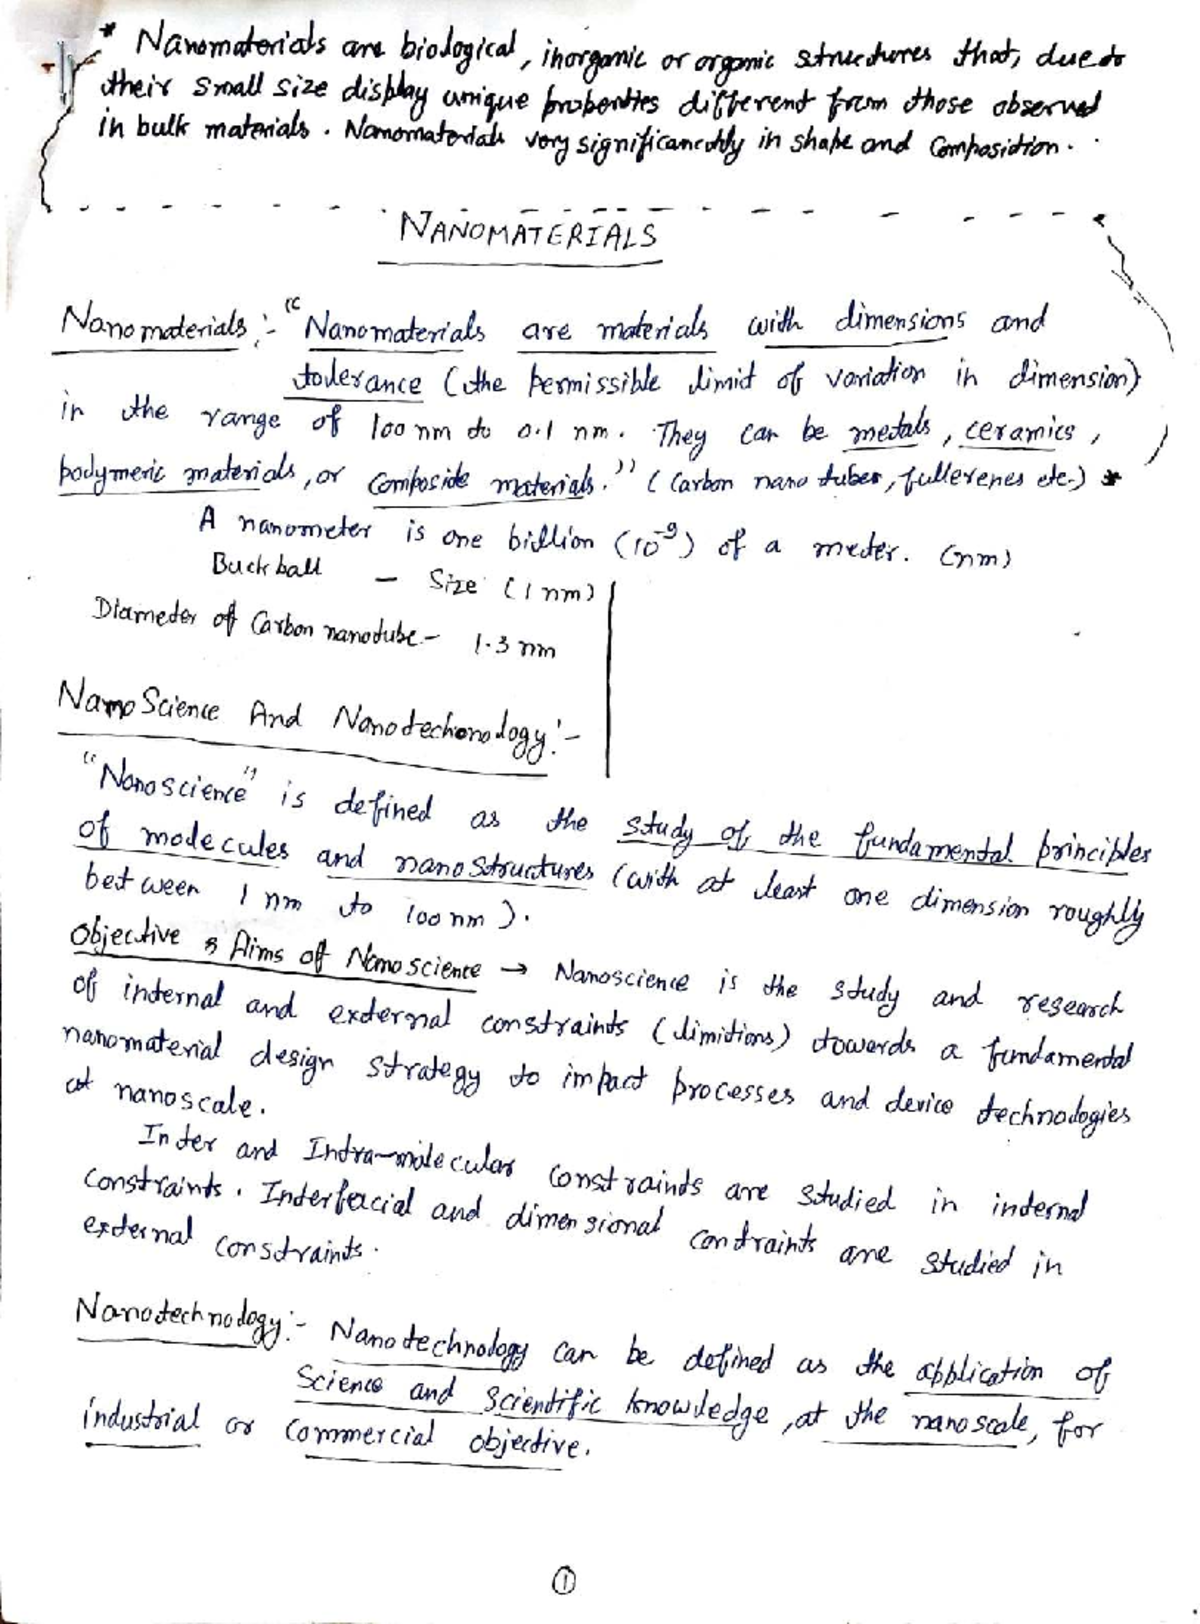 * Nanomaterials are biological, inorganic or organic structures that, due to
their small size display unique properties different from those observed
in bulk materials. Nanomaterials very significancetly in shape and composition.
NANOMATERIALS
Nanomaterials :- "Nanomaterials are materials with dimensions and
tolerance (the permissible limit of variation in dimension)
in the range of 100 nm to 0.1 nm. They can be metals, ceramics,
polymeric materials, or composite materials." (Carbon nano tubes, fullerenes etc.) *
A nanometer is one billion (10⁻⁹) of a meter. (nm)
Buck ball - Size (1 nm)
Diameter of Carbon nanotube - 1.3 nm
Nano Science And Nanotechonology:-
"Nanoscience" is defined as the study of the fundamental principles
of molecules and nanostructures (with at least one dimension roughly
between 1 nm to 100 nm).
Objective & Aims of Nanoscience → Nanoscience is the study and research
of internal and external constraints (limitions) towards a fundamental
nanomaterial design strategy to impact processes and device technologies
at nanoscale.
Inter and Intra-molecular constraints are studied in internal
constraints. Interfacial and dimensional contraints are studied in
external constraints.
Nanotechnology:- Nanotechnology can be defined as the application of
Science and scientific knowledge, at the nanoscale, for
industrial or commercial objective.
1